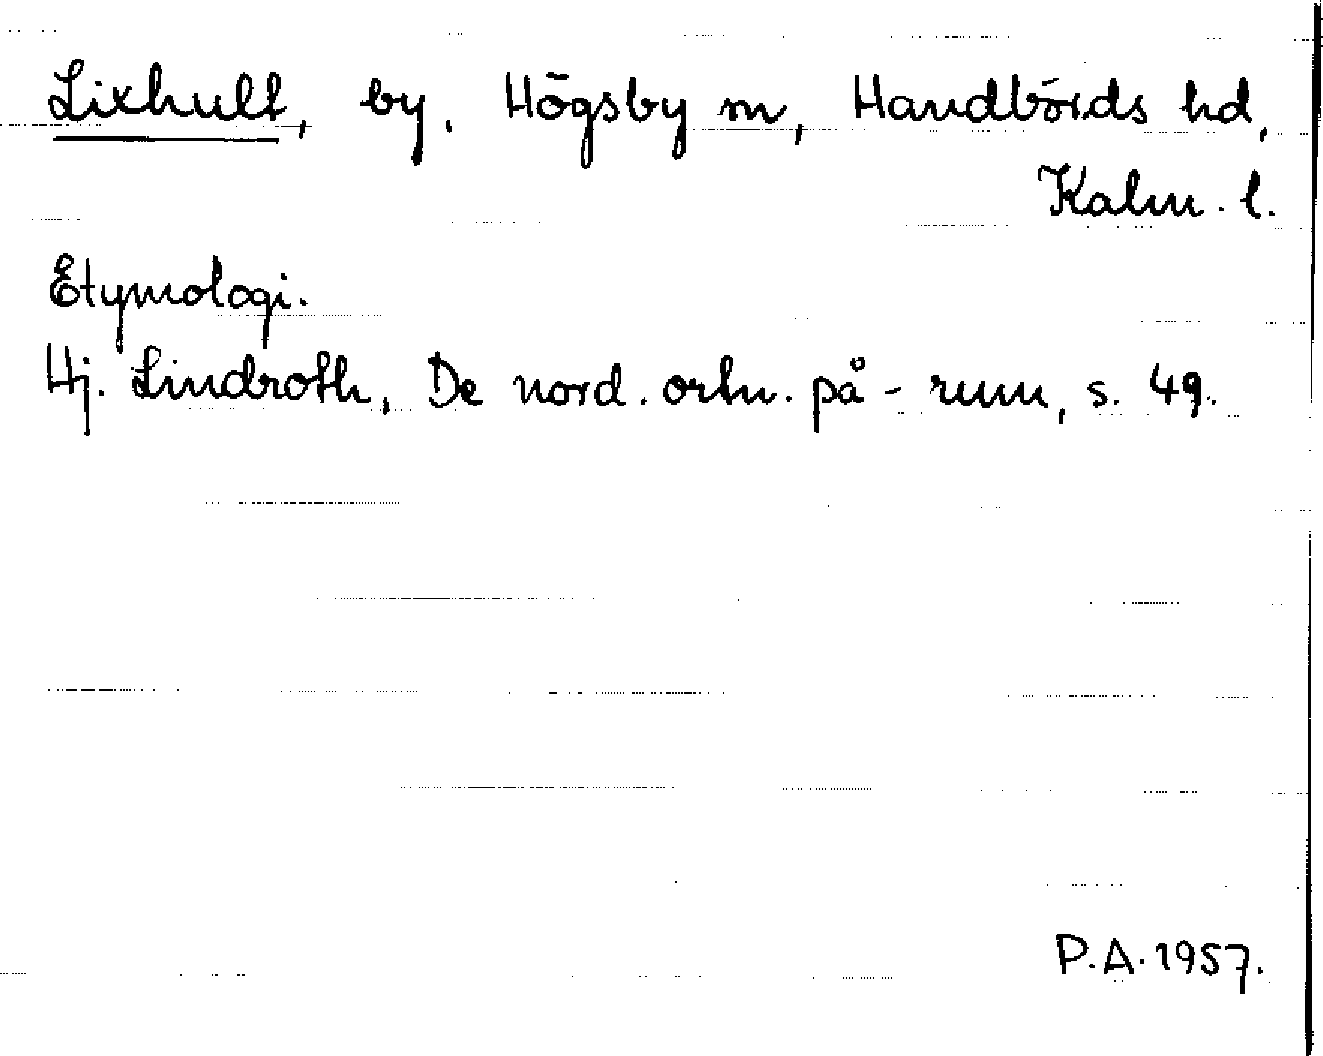 Lixhult, by, Högsby sn, Handbörds hd,
Kalm. l.
Etymologi.
Hj. Lindroth, De nord. ortn. på -rum, s. 49.
P.A. 1957.